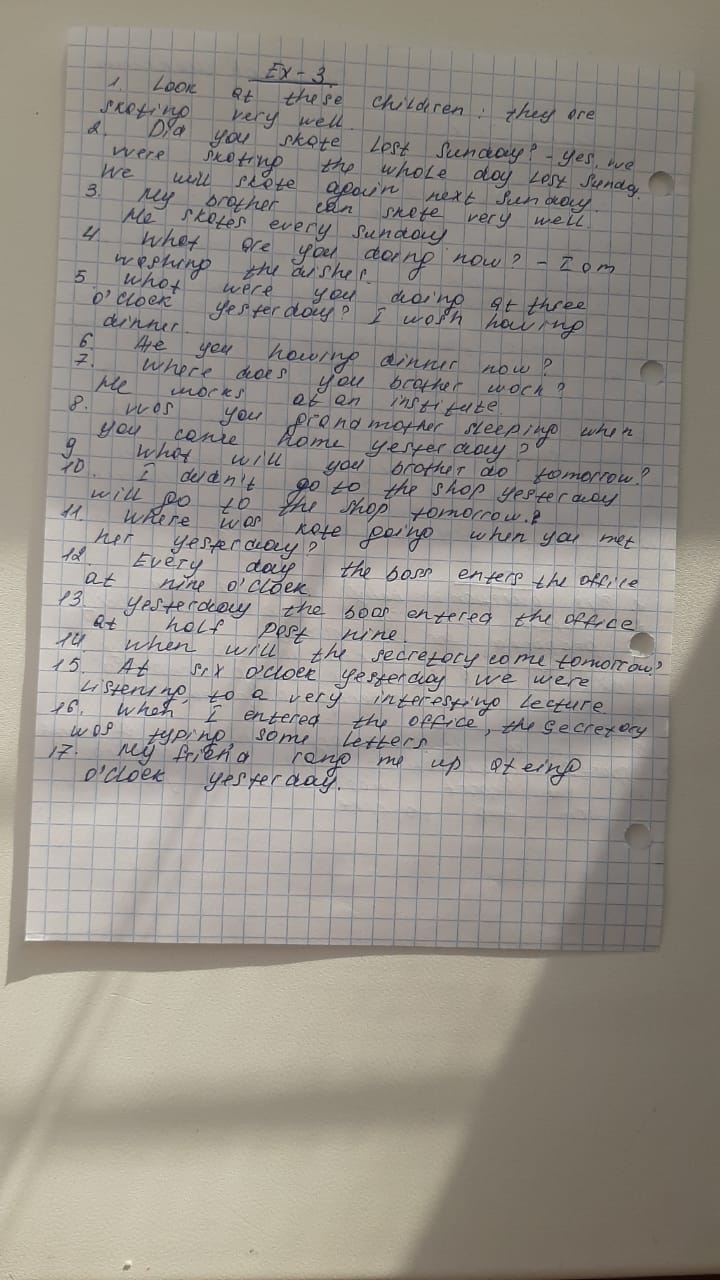 Ex-3
1. Look at these children: they are
skating very well.
2. Did you skate last Sunday? - yes, we
were skating the whole day last Sunday.
We will skate again next Sunday.
3. My brother can skate very well.
He skates every Sunday
4. What are you doing now? - I am
washing the dishes.
5. What were you doing at three
o'clock yesterday? I wosh having
dinner.
6. Are you having dinner now?
7. Where does you brother work?
He works at an institute.
8. Was you grandmother sleeping when
you came home yesterday?
9 What will you brother do tomorrow?
10. I didn't go to the shop yesterday
will go to the shop tomorrow.
11. Where was Kate going when you met
her yesterday?
12. Every day the boss enters the office
at nine o'clock.
13. Yesterday the boos entered the office
at half past nine.
14. When will the secretary come tomorrow?
15. At six o'clock yesterday we were
listening to a very interesting lecture
16. When I entered the office, the secretary
was typing some letters
17. My friend rang me up at eing
o'clock yesterday.